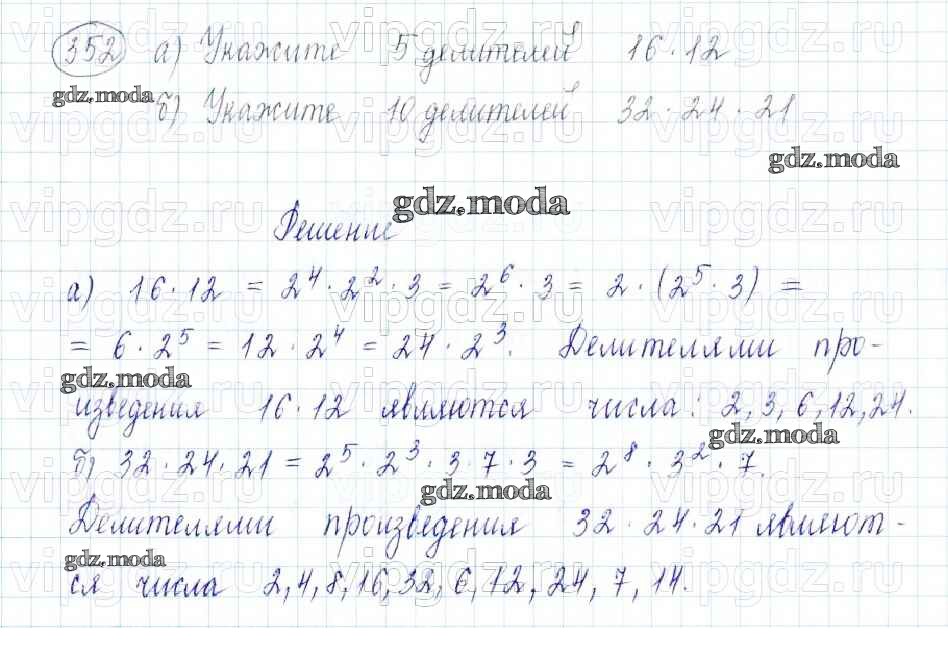 352 а) Укажите 5 делителей 16 · 12
gdz.moda
б) Укажите 10 делителей 32 · 24 · 21
gdz.moda
gdz.moda
Решение
а) 16 · 12 = 2⁴ · 2² · 3 = 2⁶ · 3 = 2 · (2⁵ · 3) =
= 6 · 2⁵ = 12 · 2⁴ = 24 · 2³. Делителями про-
gdz.moda
изведения 16 · 12 являются числа: 2, 3, 6, 12, 24.
gdz.moda
б) 32 · 24 · 21 = 2⁵ · 2³ · 3 · 7 · 3 = 2⁸ · 3² · 7.
gdz.moda
Делителями произведения 32 · 24 · 21 являют-
gdz.moda
ся числа 2, 4, 8, 16, 32, 6, 12, 24, 7, 14.
vipgdz.ru